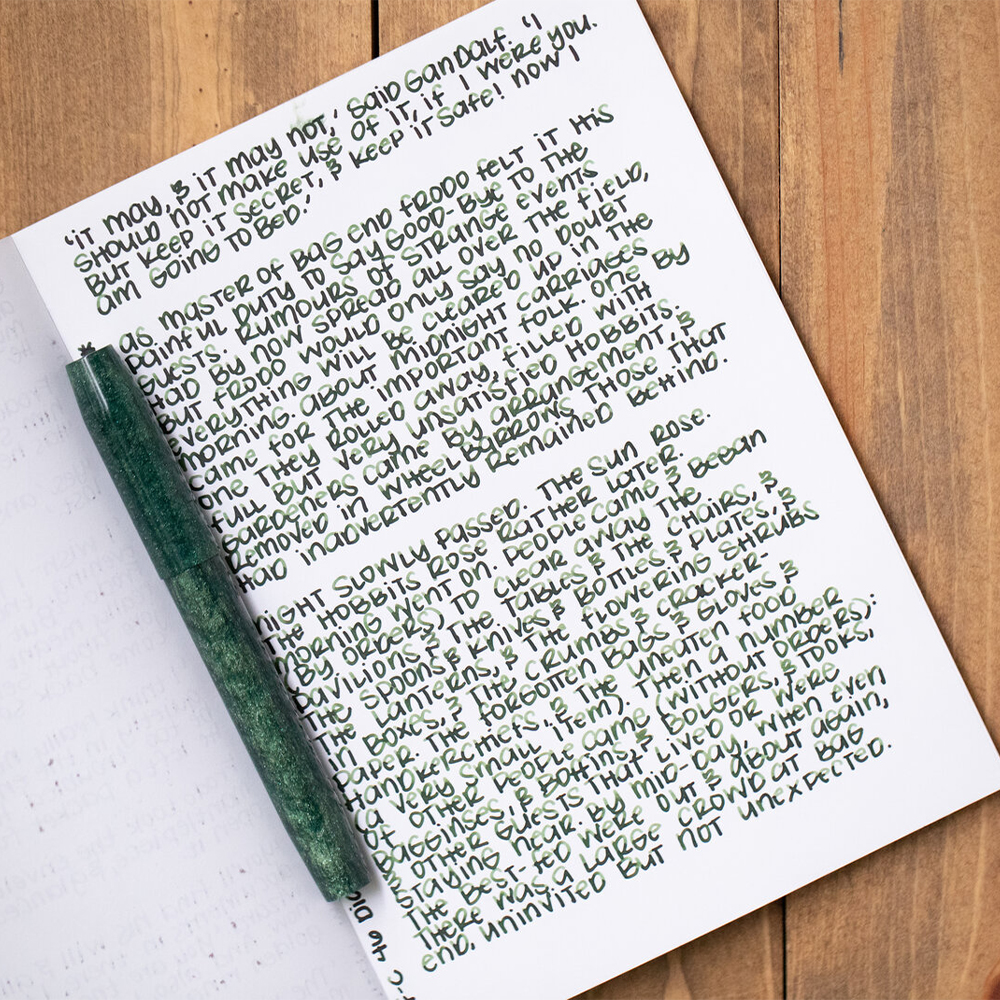 'it may, & it may not,' said Gandalf. 'I
should not make use of it, if I were you.
But keep it secret, & keep it safe! now I
am going to bed.'
as master of Bag End Frodo felt it his
painful duty to say good-bye to the
guests. Rumours of strange events
had by now spread all over the field,
but Frodo would only say no doubt
everything will be cleared up in the
morning. about midnight carriages
came for the important folk. One by
one they rolled away, filled with
full but very unsatisfied hobbits.
Gardeners came by arrangement, &
removed in wheelbarrows those that
had inadvertently remained behind.
Night slowly passed. The sun rose.
The hobbits rose rather later.
morning went on. People came & began
(by orders) to clear away the
pavilions & the tables & the chairs, &
the spoons & knives & bottles & plates, &
the lanterns, & the flowering shrubs
in boxes, & the crumbs & cracker-
paper, the forgotten bags & gloves &
handkerchiefs, & the uneaten food
(a very small item). Then a number
of other people came (without orders):
Bagginses, & Boffins, & Bolgers, & Tooks,
& other guests that lived or were
staying near. By mid-day, when even
the best-fed were out & about again,
there was a large crowd at Bag
End, uninvited but not unexpected.